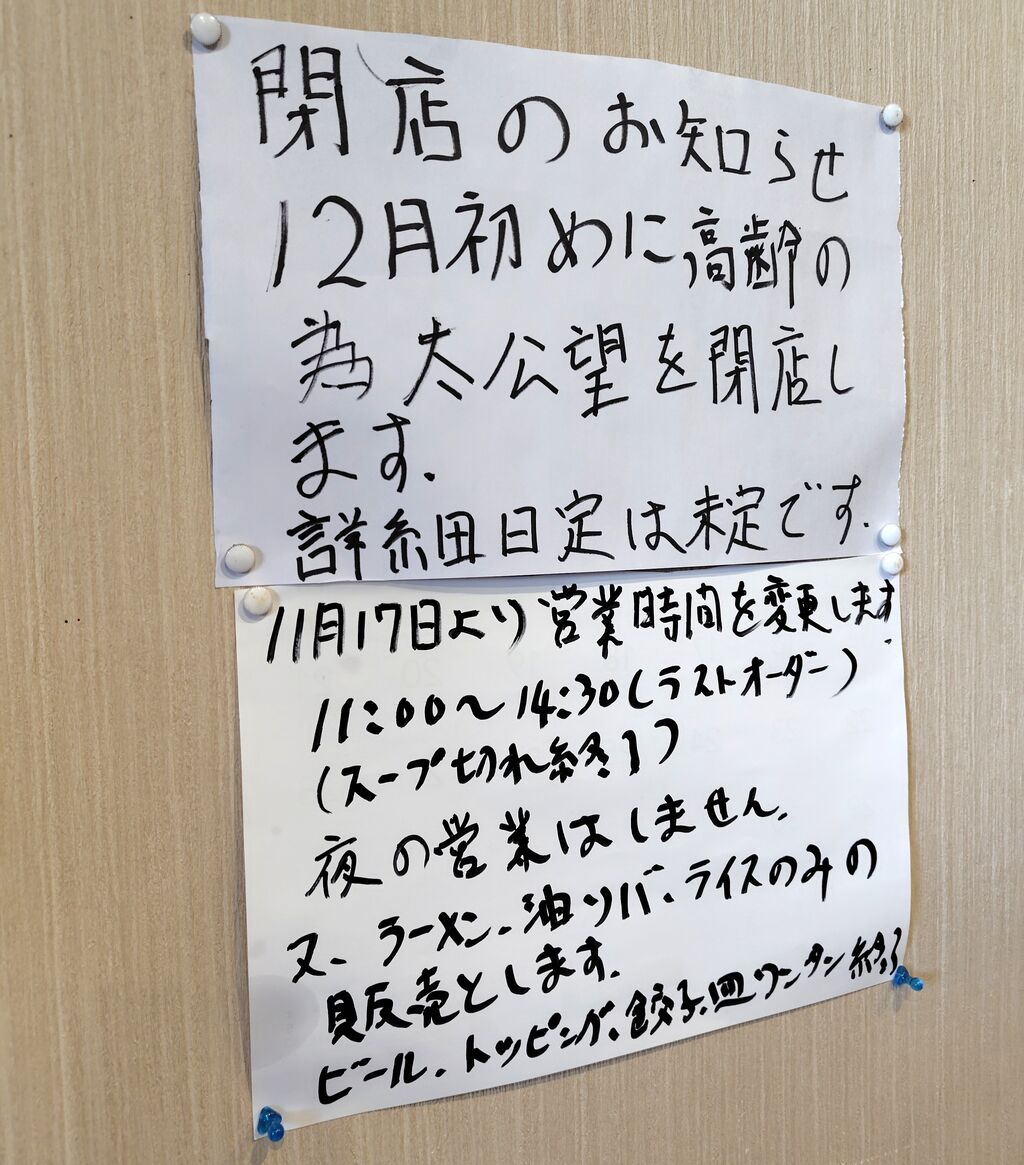 閉店のお知らせ
12月初めに高齢の
為太公望を閉店し
ます.
詳細日定は未定です.
11月17日より営業時間を変更します.
11:00〜14:30(ラストオーダー)
(スープ切れ終了)
夜の営業はしません.
又、ラーメン、油ソバ、ライスのみの
販売とします.
ビール、トッピング、餃子、皿ワンタン終了